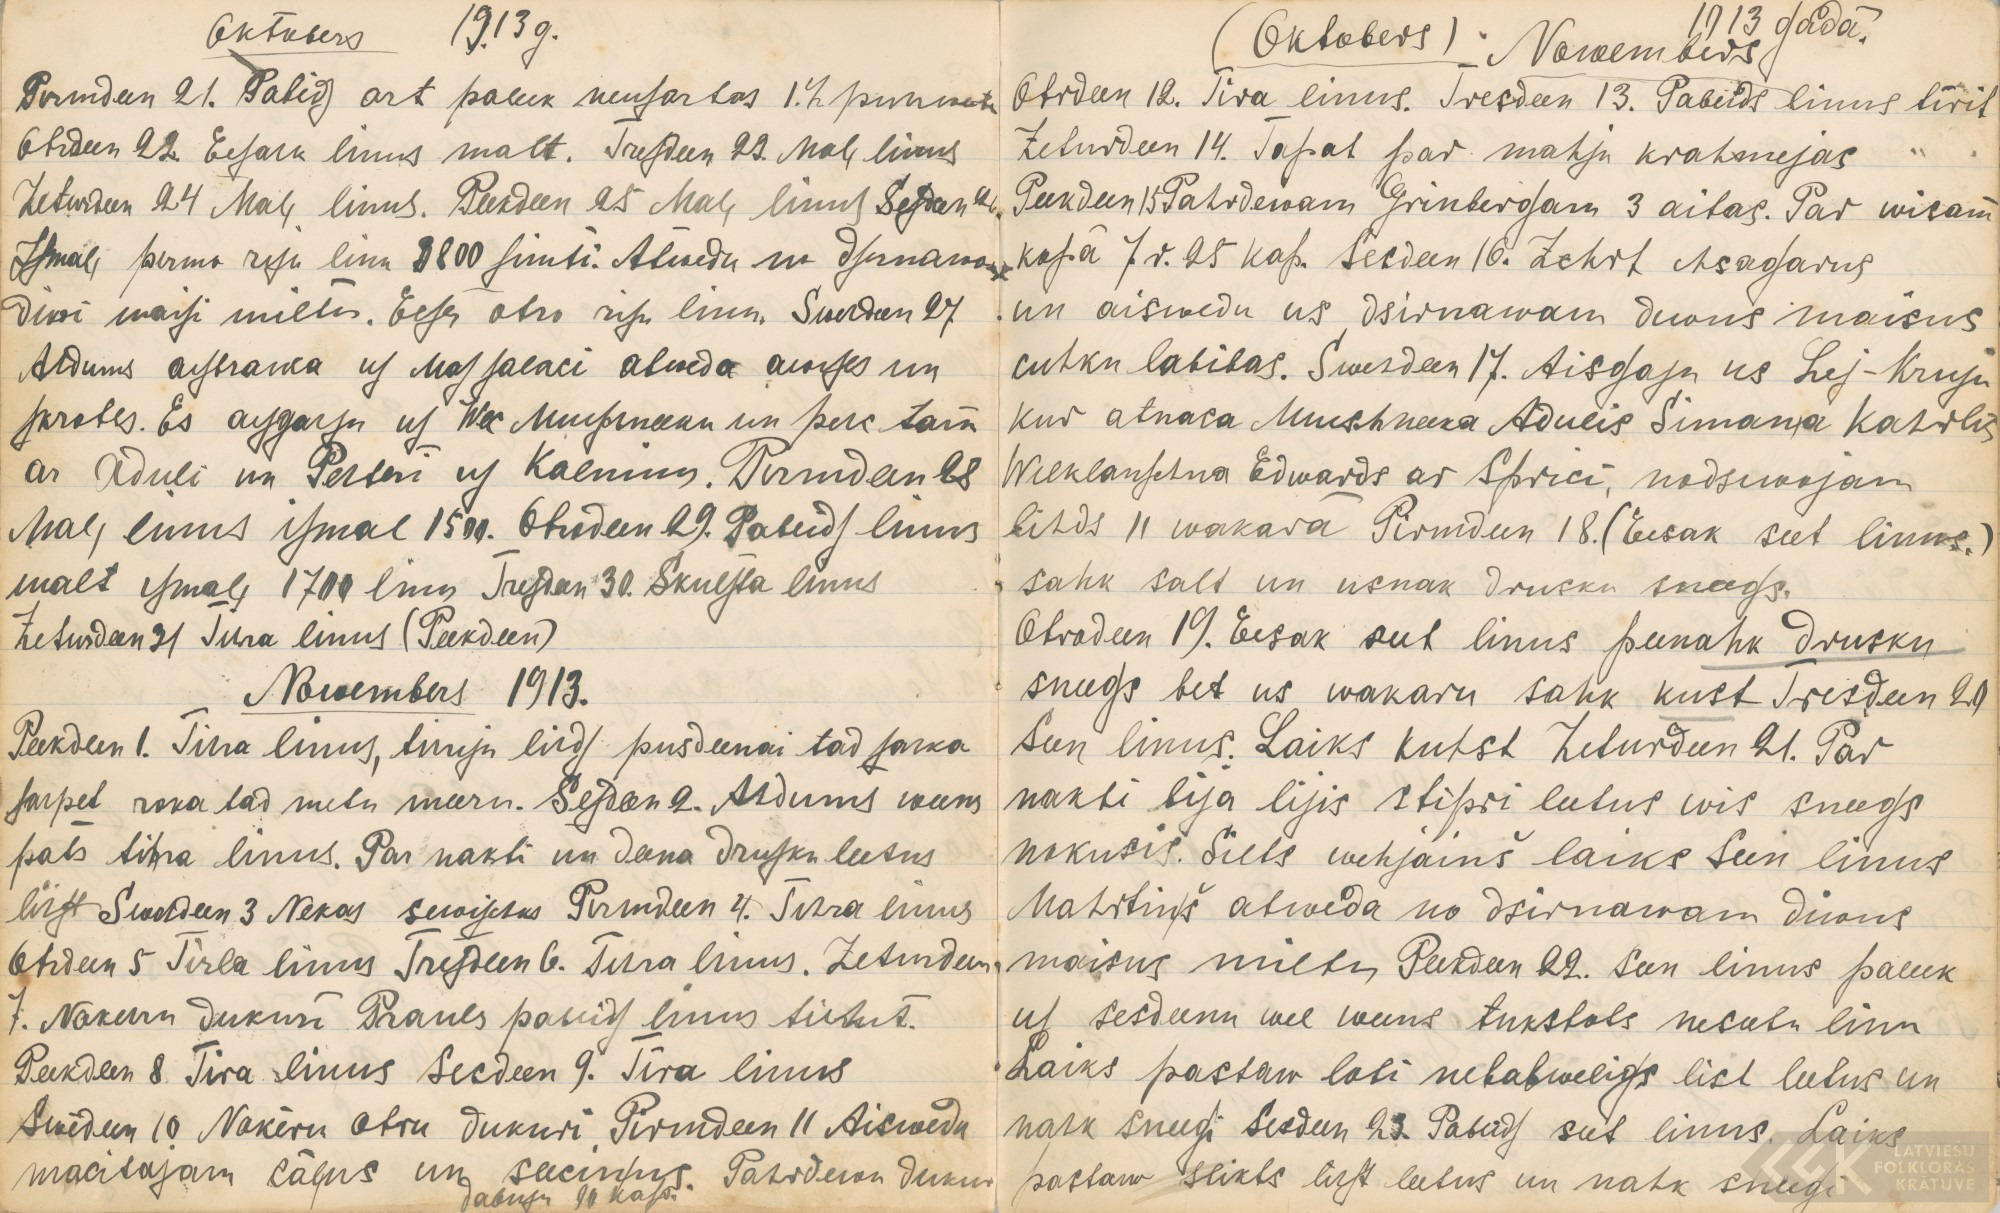 Oktobers 1913g.
Pirmdeen 21. Pabeidz art paleek neusartas 1.½ purweeta
Otrdeen 22. Eesaik linus malt. Tresdeen 23. Maly linus
Zeturdeen 24 Maly linus. Peekdeen 25 Maly linus Sesdeen 26.
Ismaly pirmo riju linu 3800 simti. Atwedu no dsirnawam
diwi maisi miltu. Eeser otro riju linu. Swetdeen 27
Atdums aisbrauca us Massalaci atweda awises un
probes. Es aisgaju us Wec Muischneeku un pehc tam
ar Aduli un Peteri us Kalninu. Pirmdeen 28
Maly linus ismal 1500. Otrdeen 29. Pabeidz linus
malt ismaly 1700 linu Tresdeen 30. Skulsta linus
Zeturdeen 31 Tihra linus (Peekdeen)
Nowembers 1913.
Peekdeen 1. Tihra linus, tiriju lidz pusdeenai tad sarka
sarpet roka tad metu meeru. Sesdeen 2. Atdums weens
pats tihra linus. Par nakti un deena drusku leetus
list Swetdeen 3 Nekas sewischks Pirmdeen 4. Tihra linus
Otrdeen 5 Tirla linus Tresdeen 6. Tihra linus. Zeturdeen
7. Nokeru dukuri Prauls pabeidz linus tirit.
Peekdeen 8 Tira linus Sesdeen 9. Tira linus
Swedeen 10. Nokeru otru dukuri. Pirmdeen 11 Aiswedu
macitajam kaļus un seecinus. Pahrdewu dukur
dabuju 90 kap.
(Oktobers) Nowembers 1913 gadā.
Otrdeen 12. Tira linus. Tresdeen 13. Pabeidz linus tirit
Zeturdeen 14. Tapat par mahju krahmejas "
Peekdeen 15 Pahrdewam Grinbergam 3 aitas. Par wisam
kopā 7 r. 25 kap. Sesdeen 16. Zehrt chsagarus
un aiswedu us dsirnawam diwus maisus
cuhku labibas. Swetdeen 17. Aisgaju us Lej-Kruju
kur atnaca Muischneeka Adulis Simana Kahrlis
Weeklauschna Edwards ar Sprici, nodsiwojam
lihds 11 wakarā Pirmdeen 18. (Eesak seet linus.)
sahk salt un usnak drusku sneegs.
Otrodeen 19. Eesak seet linus peenahk drusku
sneegs bet us wakaru sahk kust Tresdeen 20
Seen linus. Laiks kuhst Zeturdeen 21. Par
nakti bija lijis stipri leetus wis sneegs
nokusis. Silts wehjainš laiks Seen linus
Mahrtinš atweda no dsirnawam diwus
maisus miltu, Peekdeen 22. Seen linus paleek
us sesdeenu wel weens tukstots neseetu linu
Laiks pastaw loti nelabweligs list leetus un
nahk sneegi Sesdeen 23. Pabeidz seet linus. Laiks
pastaw slikts list leetus un nahk sneegi
LATVIEŠU
FOLKLORAS
KRĀTUVE